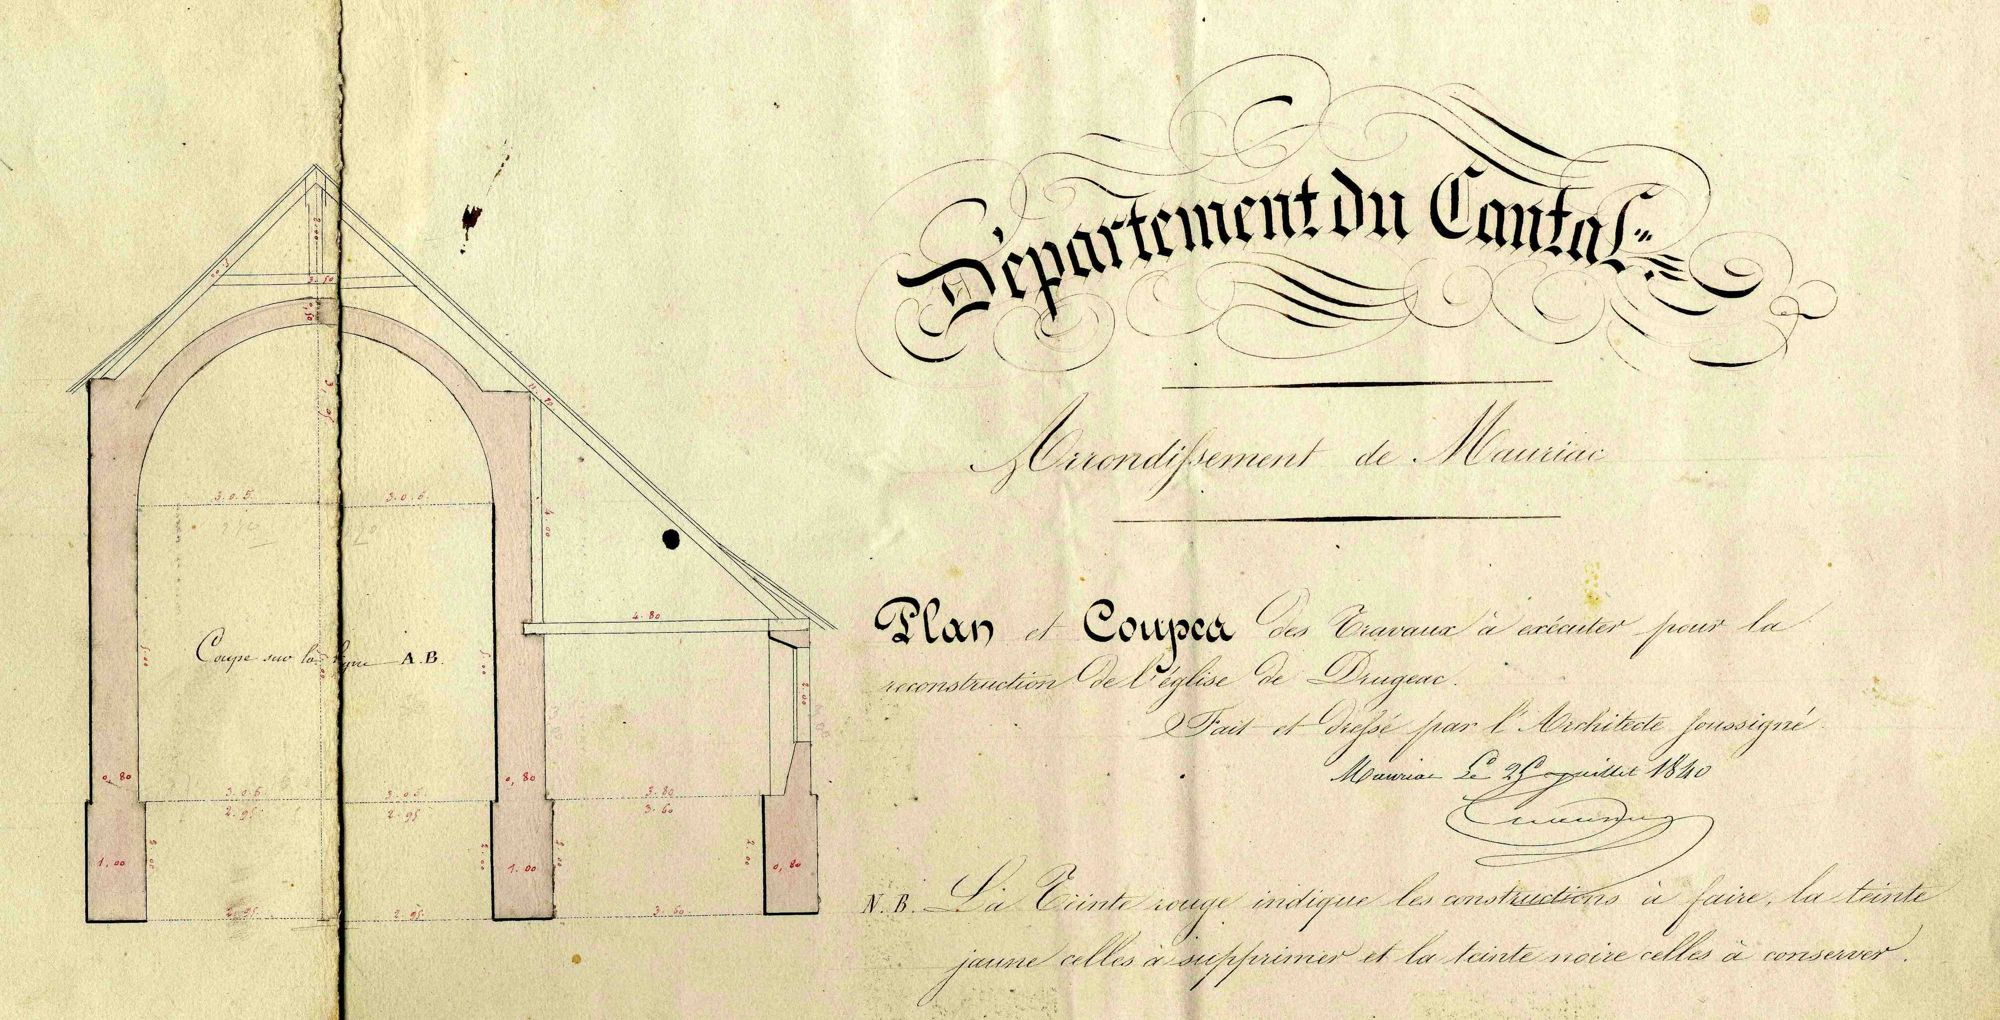 Département du Cantal
Arrondissement de Mauriac
Plan et Coupes des Travaux à exécuter pour la
reconstruction de l'église de Drugeac.
Fait et dressé par l'Architecte soussigné
Mauriac Le juillet 1840
N. B. La Teinte rouge indique les constructions à faire, la teinte
jaune celles à supprimer et la teinte noire celles à conserver.
Coupe sur la ligne A.B.
3.50
0,50
11.80
3.05 3.05
4.00
4.80
5.00 5.00
2.00
0,80 0,80
3.05 3.05 3.80
2.95 2.95 3.60
2.00 2.00 2.00 2.00
1.00 1.00 0,80
2.95 2.95 3.60